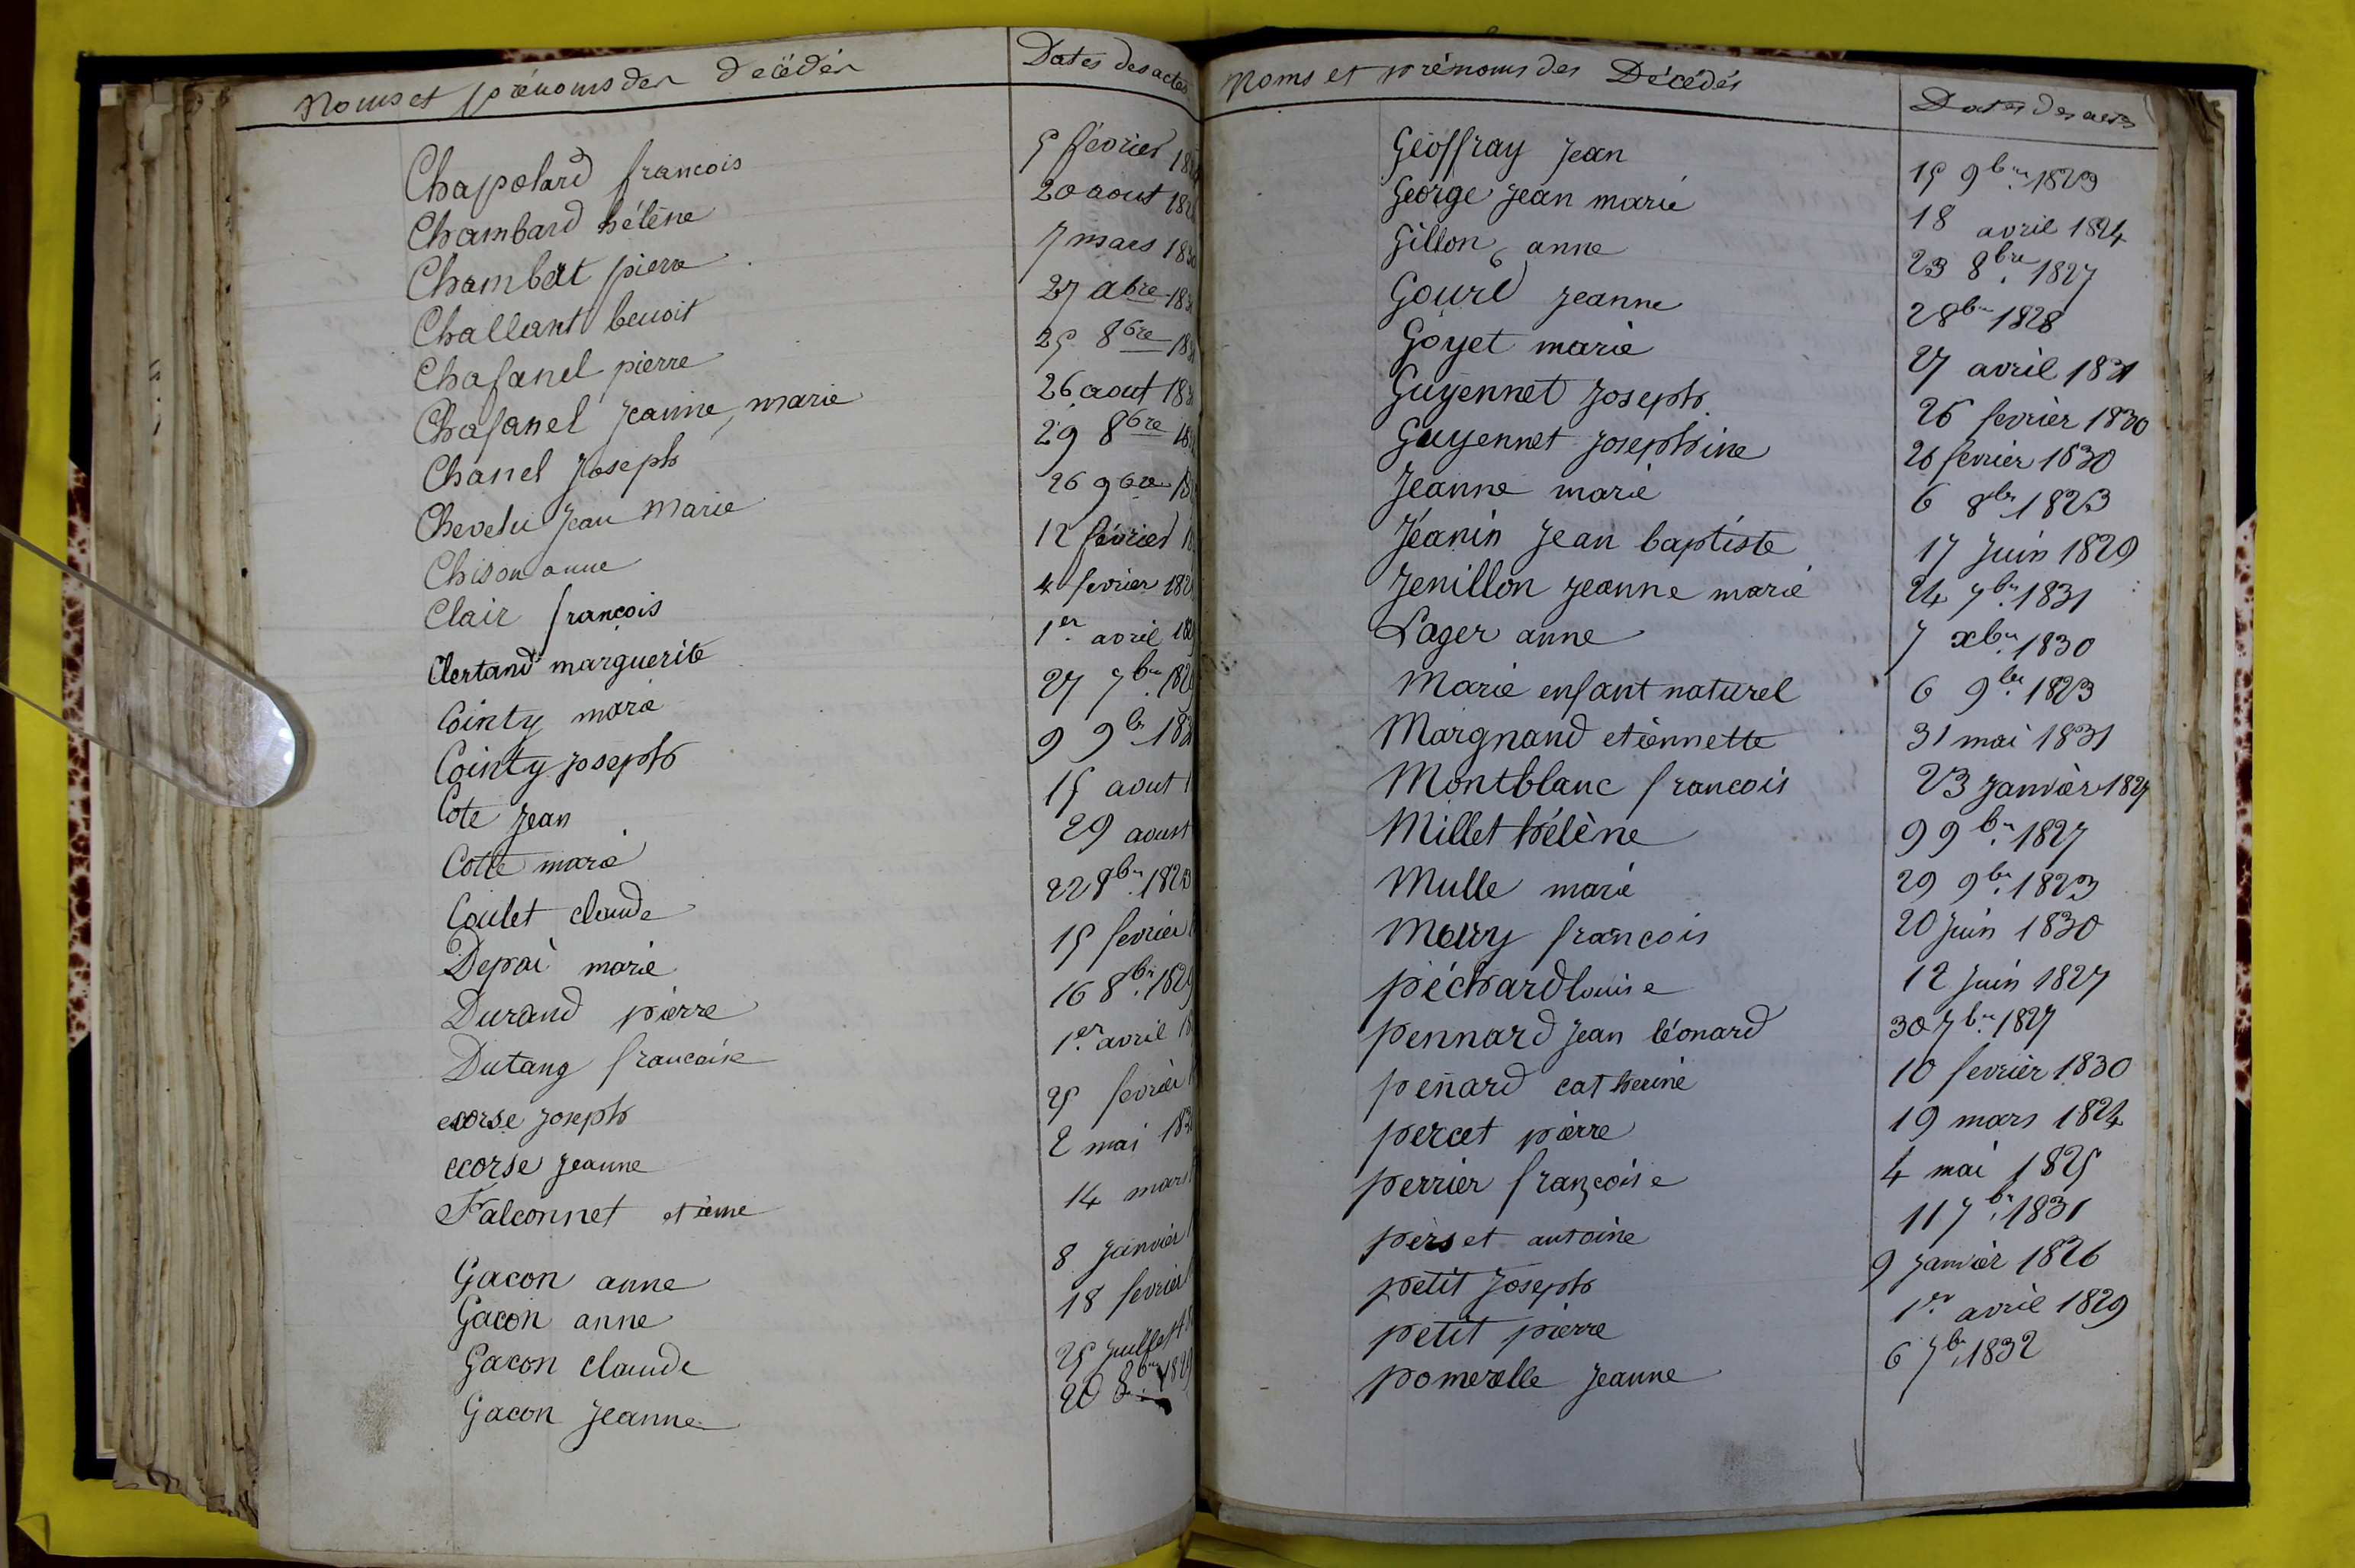 Noms et prénoms des décédés Dates des actes
Chapolard francois 5 février
Chambard hélène 20 aout
Chambat pierre 7 mars
Challant benoit 27 abre
Chafanel pierre 25 8bre
Chafanel jeanne, marie 26 aout
Chanel Joseph 29 8bre
Chevelu Jean Marie 26 9bre
Chison anne 12 février
Clair françois 4 fevrier
Clertand marguerite 1er avril
Cointy marie 27 7bre
Cointy joseph 9 9bre
Cote jean 15 aout
Cotte marie 29 aoust
Coulet claude 22 8bre 1823
Depai marie 15 fevrier
Durand pierre 16 8bre 1829
Dutang francoise 1er avril
ecorse joseph 25 fevrier
ecorse jeanne 2 mai
Falconnet etienne 14 mars
Gacon anne 8 janvier
Gacon anne 18 fevrier
Gacon claude 25 juillet
Gacon jeanne 20 8bre 1829
Noms et prénoms des Décédés Dates des actes
Géoffray jean 15 9bre 1829
George jean marie 18 avril 1824
Gillon, anne 23 8bre 1827
Gourd jeanne 2 8bre 1828
Goyet marie 27 avril 1831
Guyennet joseph 26 fevrier 1830
Guyennet josephine 26 fevrier 1830
Jeanne marie 6 8bre 1823
Jéanin jean baptiste 17 juin 1829
Jenillon jeanne marie 24 7bre 1831
Lager anne 7 xbre 1830
Marie enfant naturel 6 9bre 1823
Margnand etiennette 31 mai 1831
Montblanc francois 23 janvier 1827
Millet hélène 9 9bre 1827
Mulle marie 29 9bre 1823
Moury francois 20 juin 1830
péchard louise 12 juin 1827
pennard jean léonard 30 7bre 1827
penard catherine 10 fevrier 1830
percet pierre 19 mars 1824
perrier françoise 4 mai 1825
perset antoine 11 7bre 1831
petit joseph 9 janvier 1826
petit pierre 1er avril 1829
pomerelle jeanne 6 7bre 1832